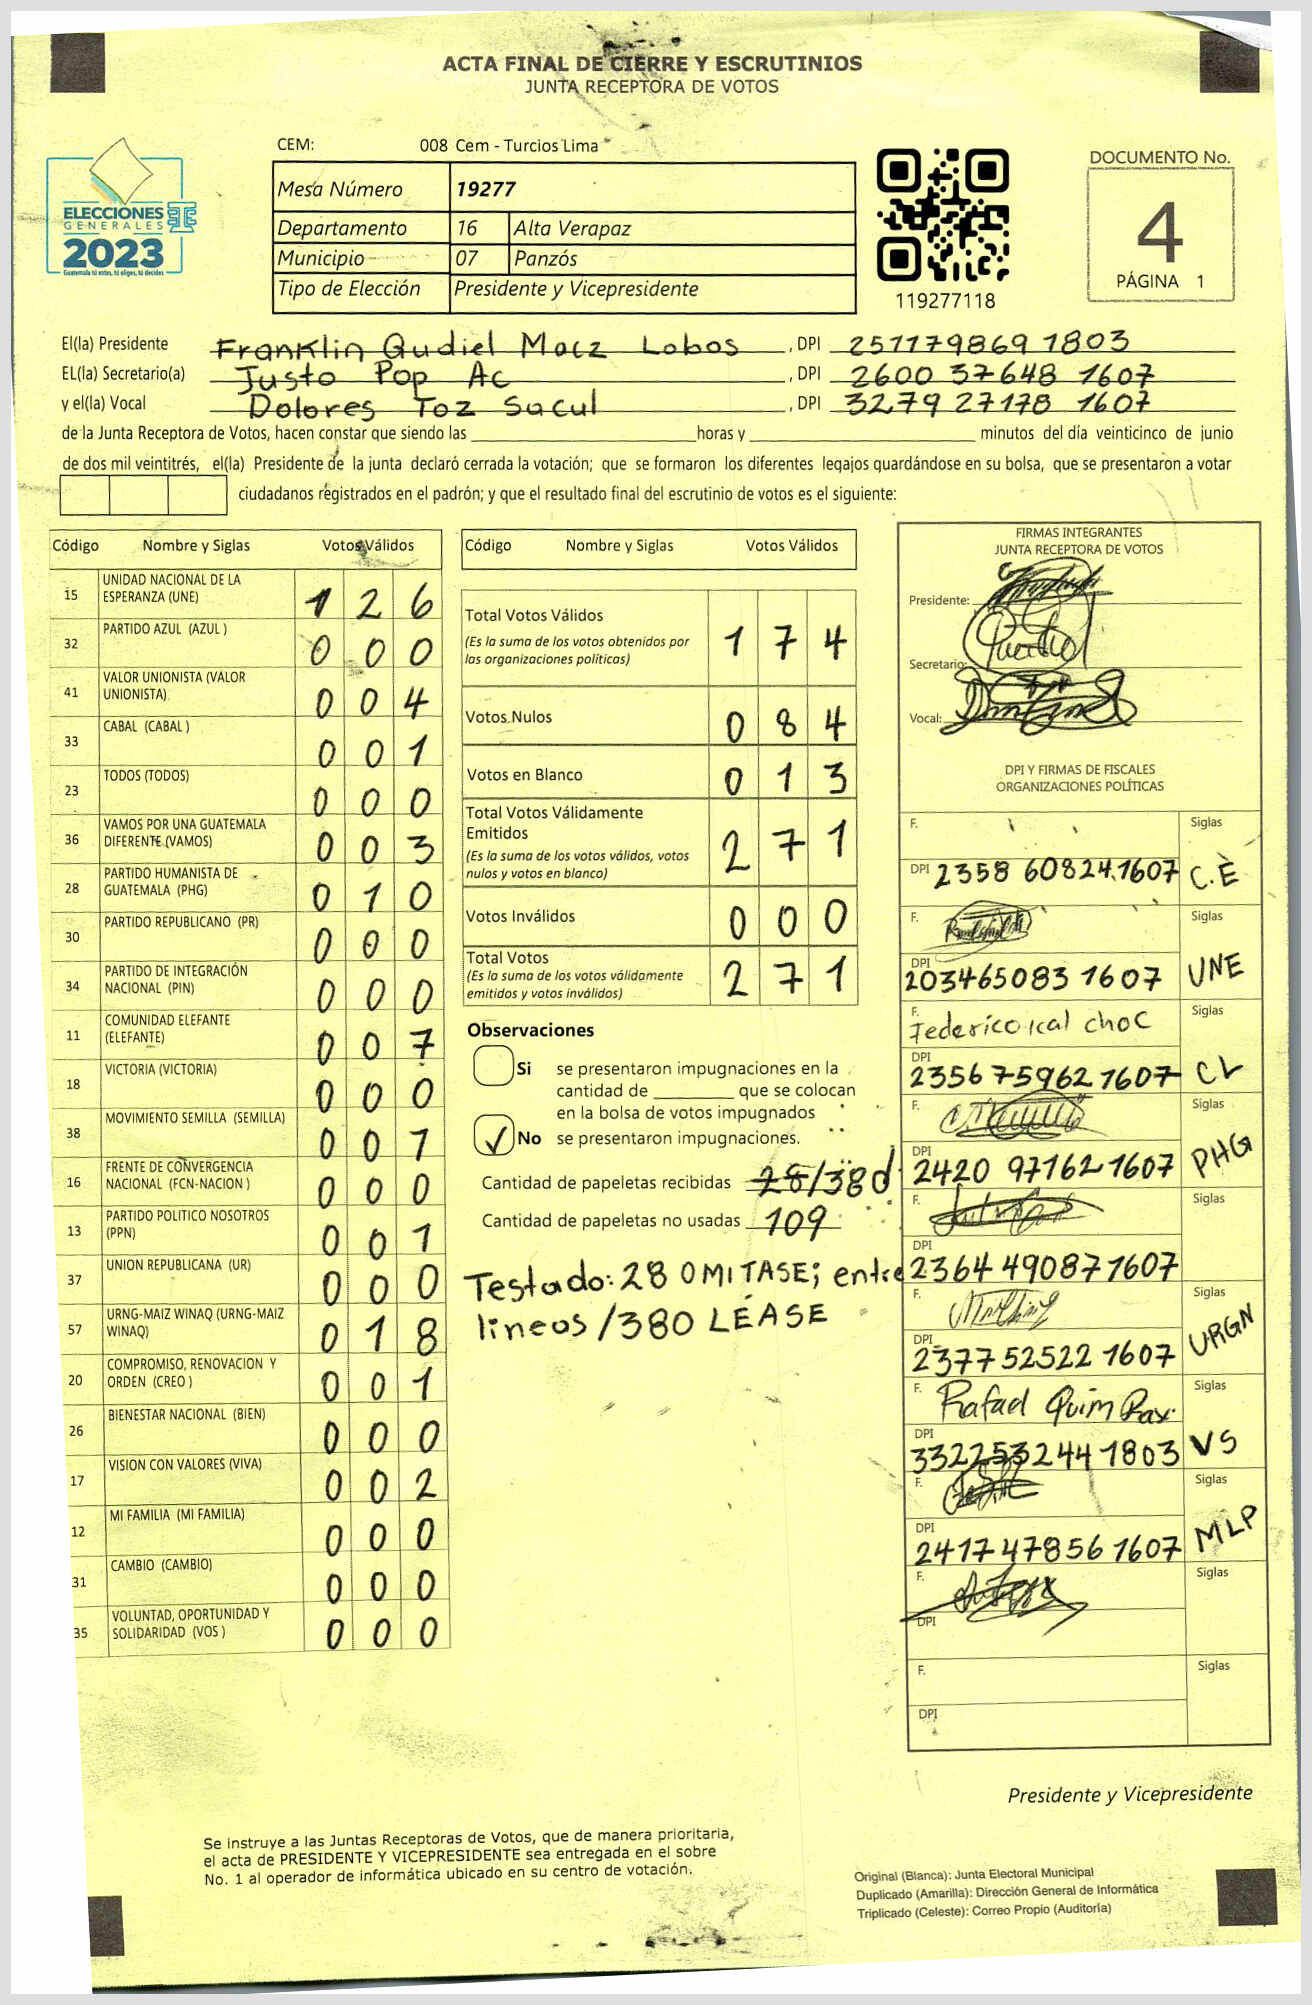 ACTA FINAL DE CIERRE Y ESCRUTINIOS
JUNTA RECEPTORA DE VOTOS
CEM: 008 Cem - Turcios Lima
Mesa Número 19277
Departamento 16 Alta Verapaz
Municipio 07 Panzós
Tipo de Elección Presidente y Vicepresidente
ELECCIONES
GENERALES
2023
Guatemala tú eres, tú eliges, tú decides
119277118
DOCUMENTO No.
4
PÁGINA 1
El(la) Presidente Franklin Gudiel Macz Lobos , DPI 251179869 1803
EL(la) Secretario(a) Justo Pop Ac , DPI 2600 37648 1607
y el(la) Vocal Dolores Toz Sacul , DPI 3279 27178 1607
de la Junta Receptora de Votos, hacen constar que siendo las horas y minutos del día veinticinco de junio
de dos mil veintitrés, el(la) Presidente de la junta declaró cerrada la votación; que se formaron los diferentes legajos guardándose en su bolsa, que se presentaron a votar
ciudadanos registrados en el padrón; y que el resultado final del escrutinio de votos es el siguiente:
Código Nombre y Siglas Votos Válidos
15 UNIDAD NACIONAL DE LA
ESPERANZA (UNE) 1 2 6
32 PARTIDO AZUL (AZUL ) 0 0 0
41 VALOR UNIONISTA (VALOR
UNIONISTA) 0 0 4
33 CABAL (CABAL ) 0 0 1
23 TODOS (TODOS) 0 0 0
36 VAMOS POR UNA GUATEMALA
DIFERENTE (VAMOS) 0 0 3
28 PARTIDO HUMANISTA DE
GUATEMALA (PHG) 0 1 0
30 PARTIDO REPUBLICANO (PR) 0 0 0
34 PARTIDO DE INTEGRACIÓN
NACIONAL (PIN) 0 0 0
11 COMUNIDAD ELEFANTE
(ELEFANTE) 0 0 7
18 VICTORIA (VICTORIA) 0 0 0
38 MOVIMIENTO SEMILLA (SEMILLA) 0 0 1
16 FRENTE DE CONVERGENCIA
NACIONAL (FCN-NACION ) 0 0 0
13 PARTIDO POLITICO NOSOTROS
(PPN) 0 0 1
37 UNION REPUBLICANA (UR) 0 0 0
57 URNG-MAIZ WINAQ (URNG-MAIZ
WINAQ) 0 1 8
20 COMPROMISO, RENOVACION Y
ORDEN (CREO ) 0 0 1
26 BIENESTAR NACIONAL (BIEN) 0 0 0
17 VISION CON VALORES (VIVA) 0 0 2
12 MI FAMILIA (MI FAMILIA) 0 0 0
31 CAMBIO (CAMBIO) 0 0 0
35 VOLUNTAD, OPORTUNIDAD Y
SOLIDARIDAD (VOS ) 0 0 0
Código Nombre y Siglas Votos Válidos
Total Votos Válidos
(Es la suma de los votos obtenidos por
las organizaciones políticas) 1 7 4
Votos Nulos 0 8 4
Votos en Blanco 0 1 3
Total Votos Válidamente
Emitidos
(Es la suma de los votos válidos, votos
nulos y votos en blanco) 2 7 1
Votos Inválidos 0 0 0
Total Votos
(Es la suma de los votos válidamente
emitidos y votos inválidos) 2 7 1
Observaciones
Si se presentaron impugnaciones en la
cantidad de que se colocan
en la bolsa de votos impugnados
No se presentaron impugnaciones.
Cantidad de papeletas recibidas 28/380
Cantidad de papeletas no usadas 109
Testado: 28 OMITASE; entre
lineos /380 LÉASE
FIRMAS INTEGRANTES
JUNTA RECEPTORA DE VOTOS
Presidente:
Secretario:
Vocal:
DPI Y FIRMAS DE FISCALES
ORGANIZACIONES POLÍTICAS
F. Siglas
DPI 2358 60824 1607 C.E
F. Siglas
DPI 203465083 1607 UNE
F. Federico Ical choc Siglas
DPI 2356 75962 1607 CL
F. Siglas
DPI 2420 97162 1607 PHG
F. Siglas
DPI 2364 49087 1607
F. Siglas
DPI 2377 52522 1607 URGN
F. Rafael Quim Rax. Siglas
DPI 3322532441803 VS
F. Siglas
DPI 2417 47856 1607 MLP
F. Siglas
DPI
F. Siglas
DPI
Presidente y Vicepresidente
Se instruye a las Juntas Receptoras de Votos, que de manera prioritaria,
el acta de PRESIDENTE Y VICEPRESIDENTE sea entregada en el sobre
No. 1 al operador de informática ubicado en su centro de votación.
Original (Blanca): Junta Electoral Municipal
Duplicado (Amarilla): Dirección General de Informática
Triplicado (Celeste): Correo Propio (Auditoría)